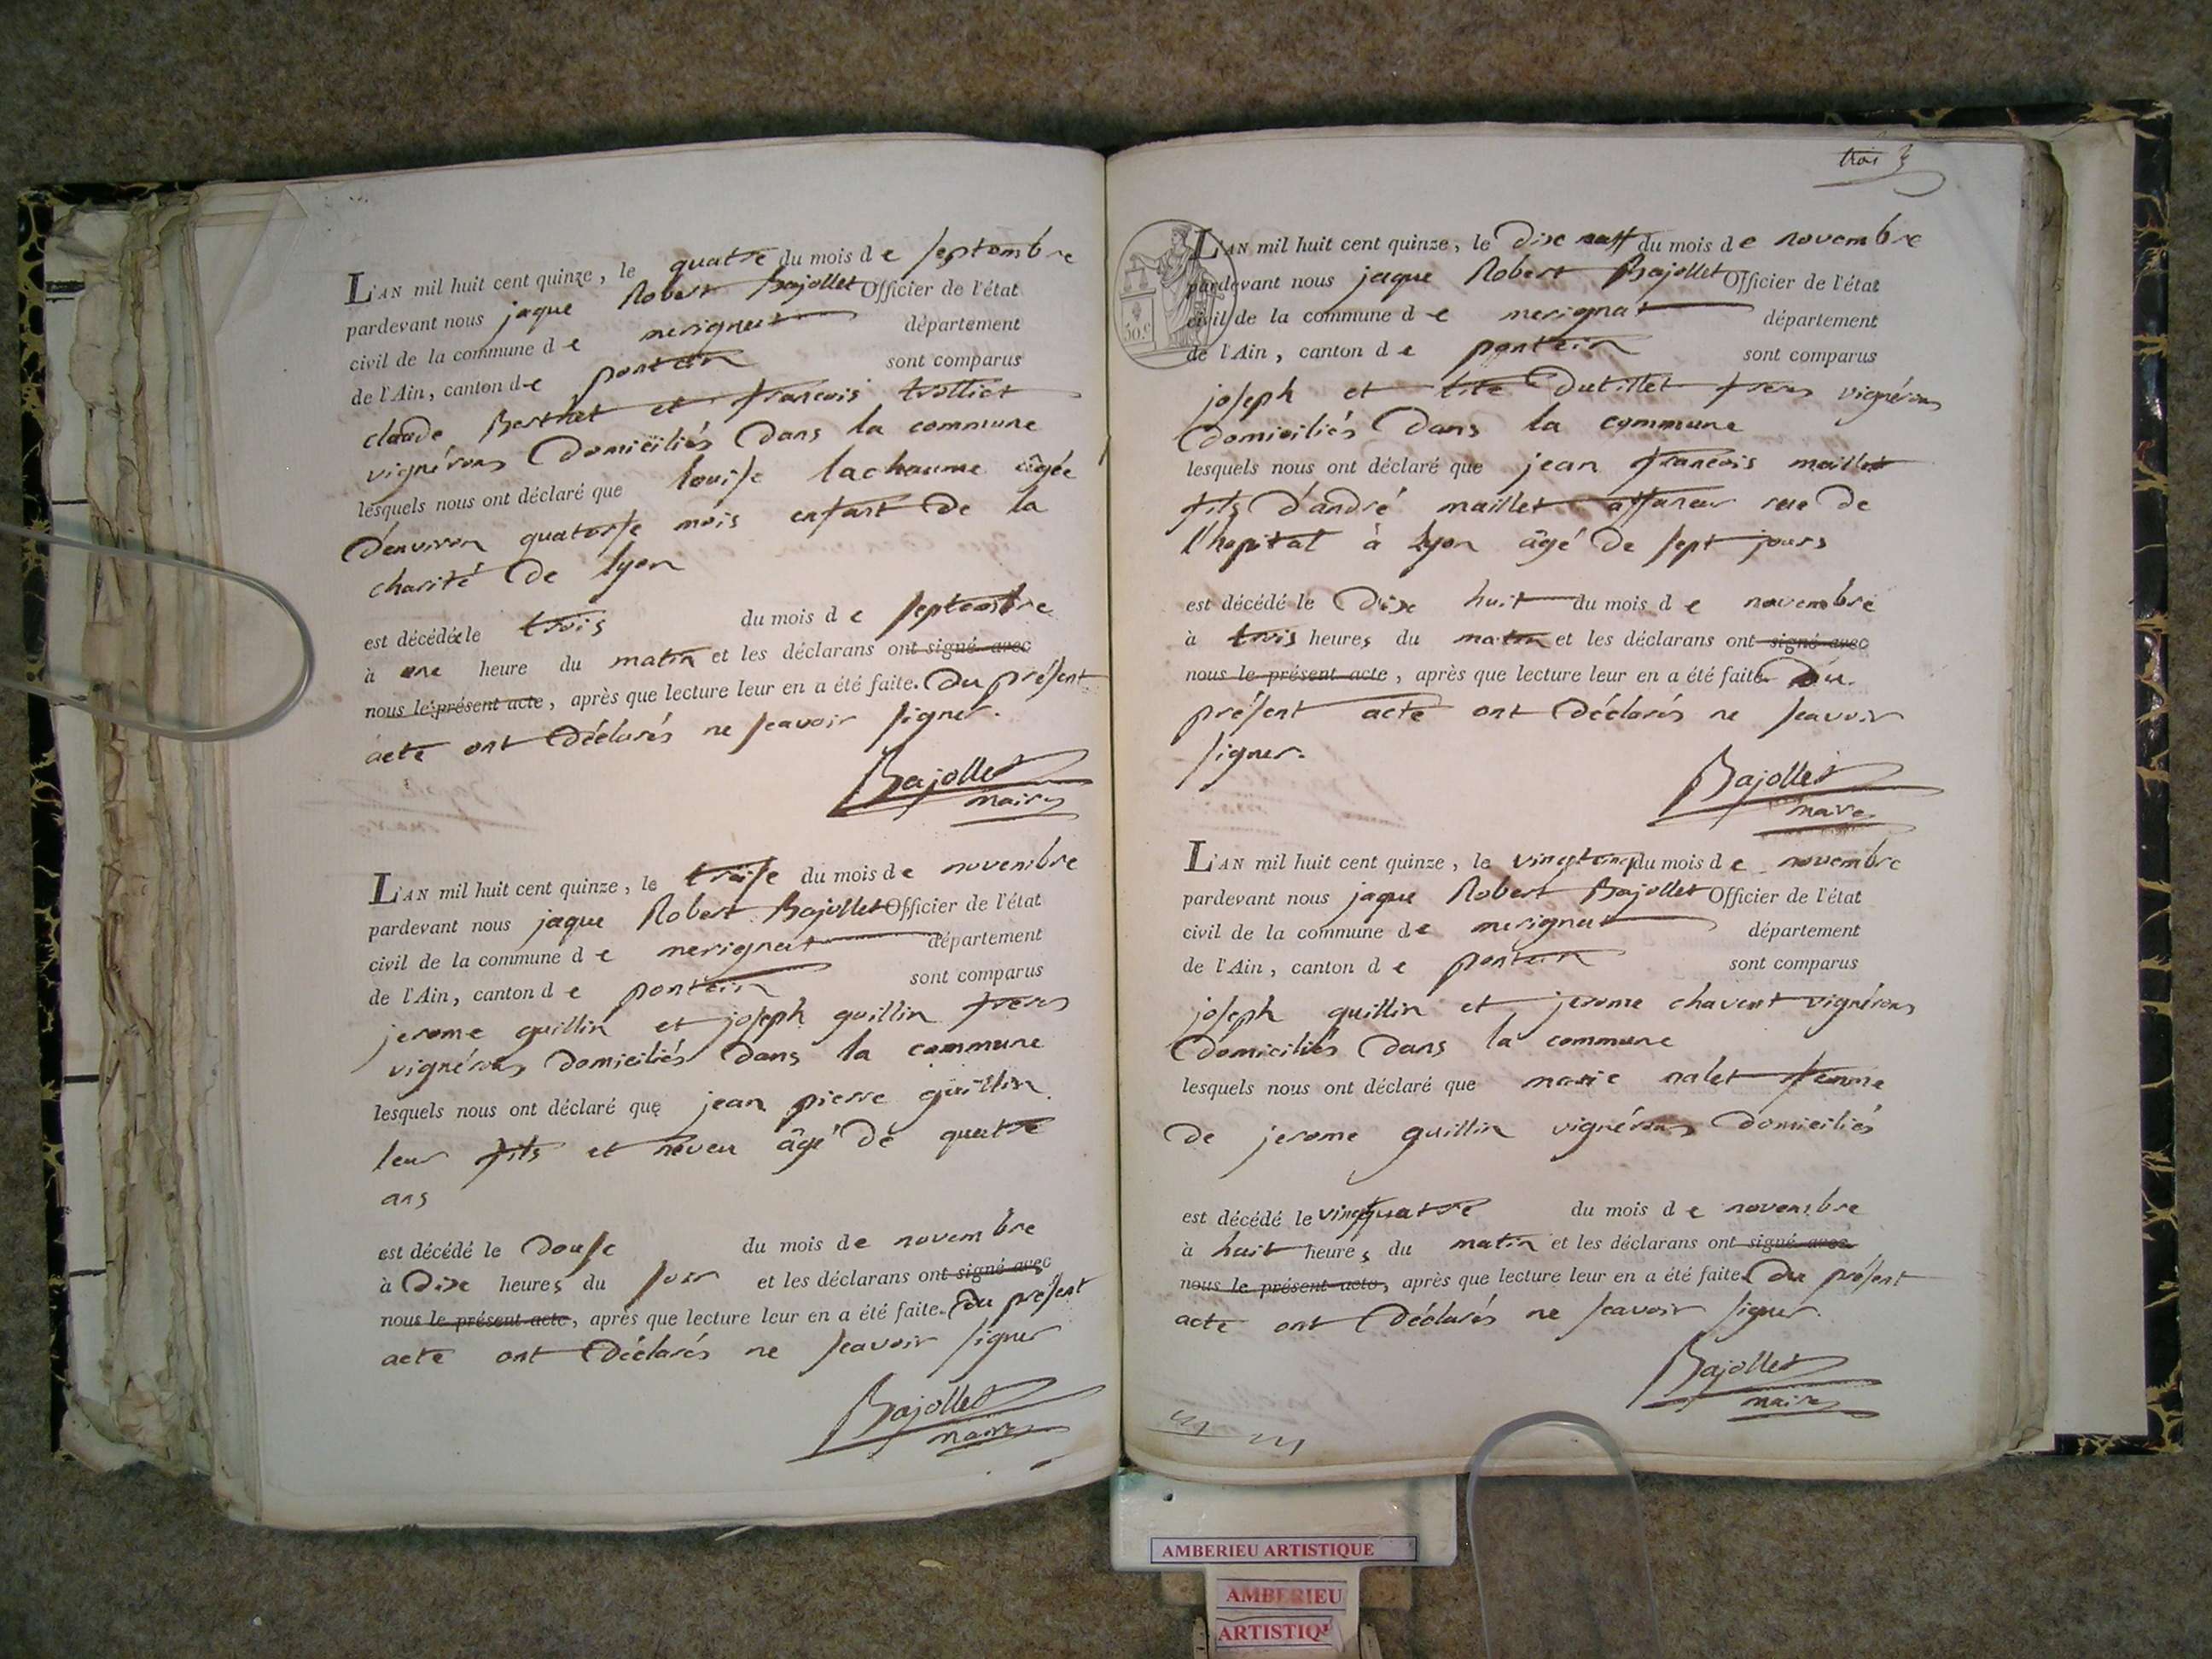 L'AN mil huit cent quinze, le quatre du mois de septembre
pardevant nous jaque Robert Bajollet Officier de l'état
civil de la commune de merignat département
de l'Ain, canton de pontein sont comparus
claude Berthet et francois trolliet
vignérons Domiciliés Dans la commune
lesquels nous ont déclaré que louise lachaume âgée
d'environ quatorse mois enfant De la
charité De lyon
est décédée le trois du mois de septembre
à une heure du matin et les déclarans ont signé avec
nous le présent acte, après que lecture leur en a été faite. Du présent
acte ont Déclarés ne scavoir signer.
Bajollet
maire
L'AN mil huit cent quinze, le treise du mois de novembre
pardevant nous jaque Robert Bajollet Officier de l'état
civil de la commune de merignat département
de l'Ain, canton de pontein sont comparus
jerome guillin et joseph guillin freres
vignérons Domiciliés Dans la commune
lesquels nous ont déclaré que jean pierre guillin
leur fils et neveu âgé De quatre
ans
est décédé le Douse du mois de novembre
à Dix heures du soir et les déclarans ont signé avec
nous le présent acte, après que lecture leur en a été faite. Du présent
acte ont Déclarés ne scavoir signer
Bajollet
maire
trois 3
L'AN mil huit cent quinze, le Dixe neuf du mois de novembre
pardevant nous jaque Robert Bajollet Officier de l'état
civil de la commune de merignat département
de l'Ain, canton de pontein sont comparus
50.c
joseph et tite Dutillet freres vignérons
Domiciliés Dans la commune
lesquels nous ont déclaré que jean francois maillet
fils d'andré maillet affaneur rue De
l'hopital à Lyon âgé De sept jours
est décédé le Dixe huit du mois de novembre
à trois heures du matin et les déclarans ont signé avec
nous le présent acte, après que lecture leur en a été faite. Du
présent acte ont Déclarés ne scavoir
signer.
Bajollet
maire
L'AN mil huit cent quinze, le vingtcinq du mois de novembre
pardevant nous jaque Robert Bajollet Officier de l'état
civil de la commune de merignat département
de l'Ain, canton de pontein sont comparus
joseph guillin et jerome chavent vignérons
Domiciliés Dans la commune
lesquels nous ont déclaré que marie nalet femme
De jerome guillin vignérons Domiciliés
est décédé le vingquatre du mois de novembre
à huit heures du matin et les déclarans ont signé avec
nous le présent acte, après que lecture leur en a été faite. Du présent
acte ont Déclarés ne scavoir signer.
Bajollet
maire
AMBERIEU ARTISTIQUE
AMBERIEU
ARTISTIQ